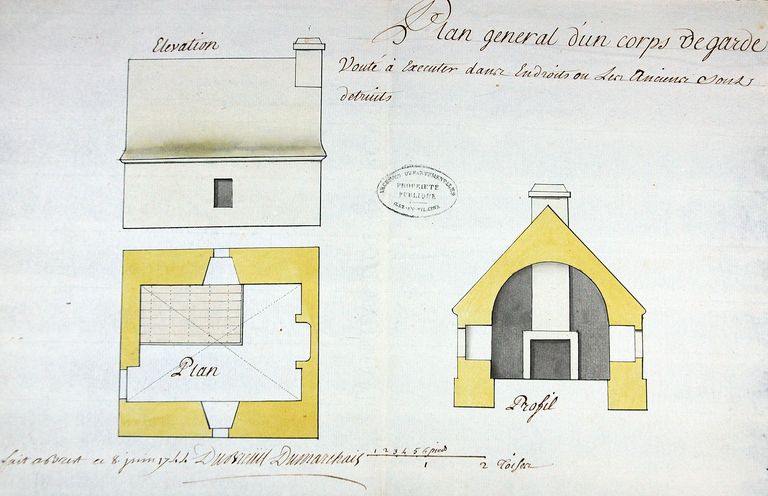 Plan general d'un corps de garde
Vouté à Executer dans Endroits ou Les Anciens Sont
detruits
Elevation
ARCHIVES DEPARTEMENTALES
PROPRIETE
PUBLIQUE
ILLE-ET-VILAINE
Plan
Profil
fait a Brest ce 8 juin 1744 Dubreuil Dumarchais
1 2 3 4 5 6 pied
1 2 Toises